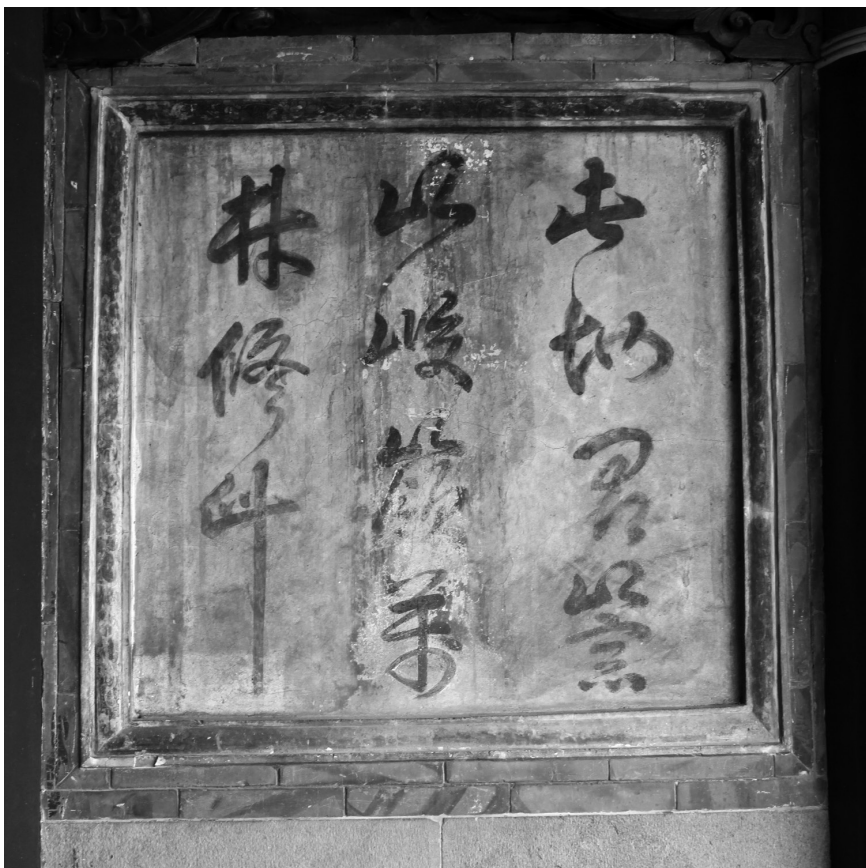 此地有崇
山峻嶺茂
林修竹